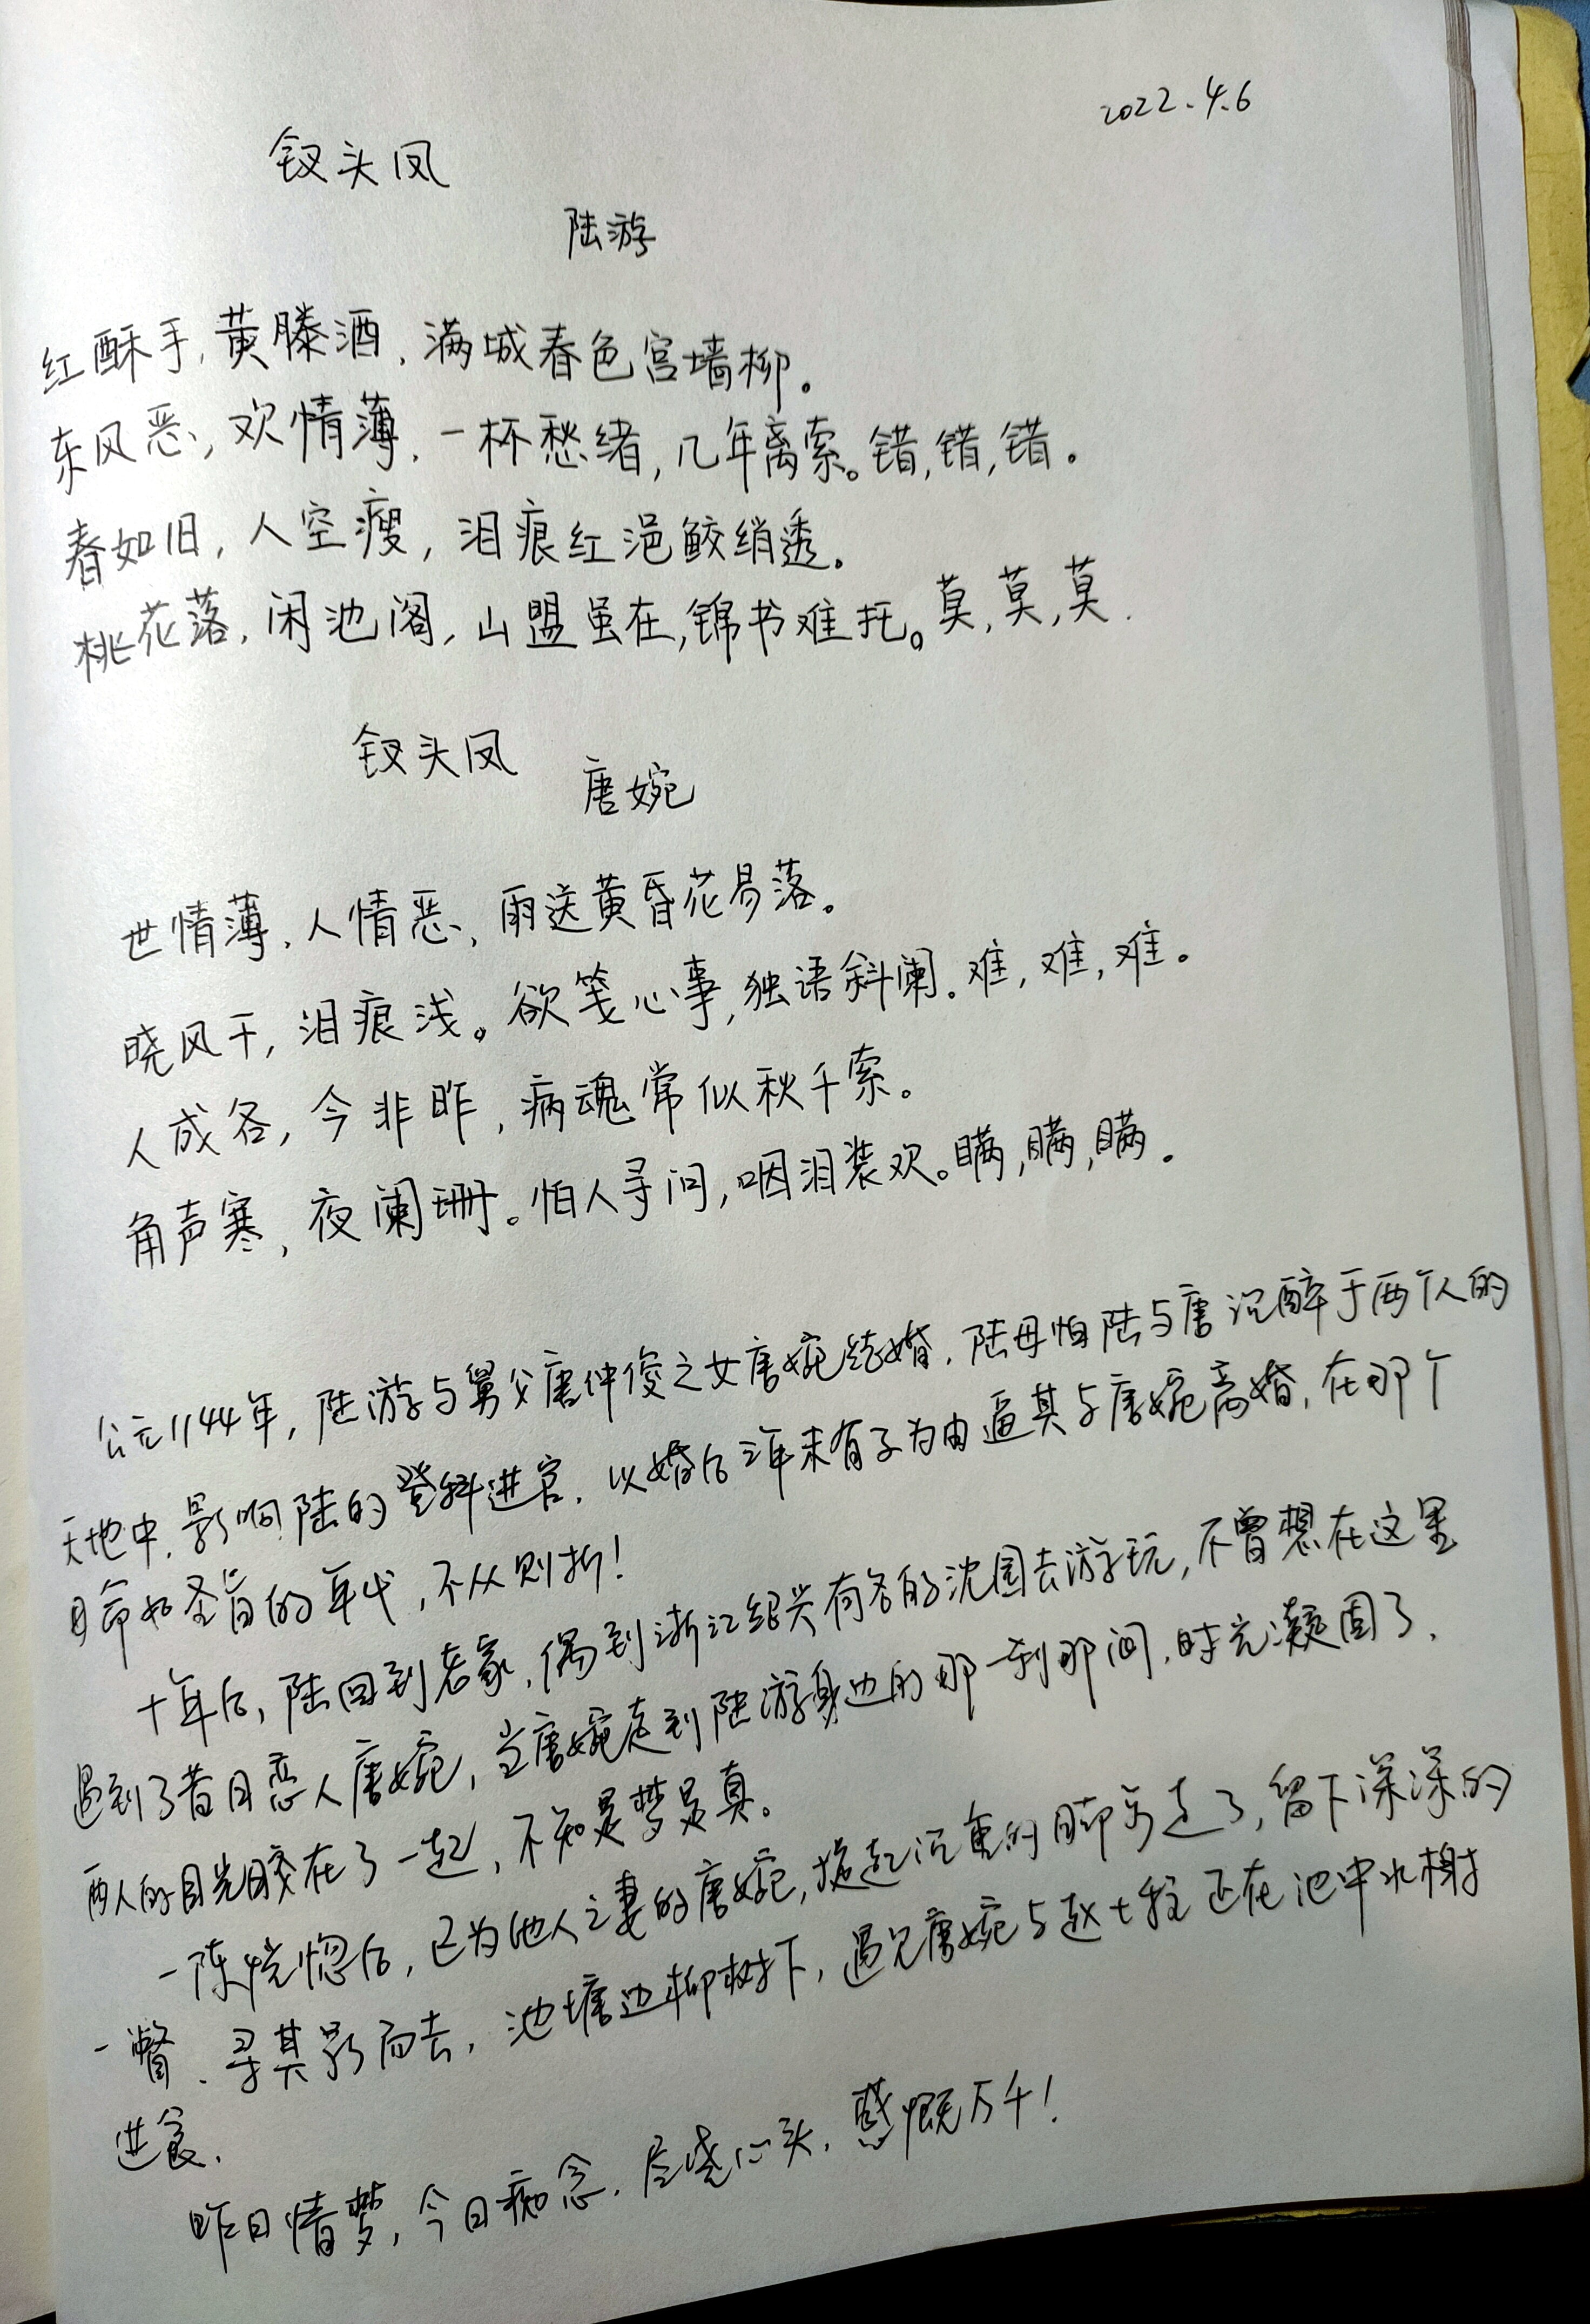 2022.4.6
钗头凤
陆游
红酥手,黄滕酒,满城春色宫墙柳。
东风恶,欢情薄,一杯愁绪,几年离索。错,错,错。
春如旧,人空瘦,泪痕红浥鲛绡透。
桃花落,闲池阁,山盟虽在,锦书难托。莫,莫,莫.
钗头凤
唐婉
世情薄,人情恶,雨送黄昏花易落。
晓风干,泪痕浅。欲笺心事,独语斜阑。难,难,难。
人成各,今非昨,病魂常似秋千索。
角声寒,夜阑珊。怕人寻问,咽泪装欢。瞒,瞒,瞒。
公元1144年,陆游与舅父唐仲俊之女唐婉结婚,陆母怕陆与唐沉醉于两个人的
天地中,影响陆的登科进官,以婚后三年未有子为由逼其与唐婉离婚,在那个
母命如圣旨的年代,不从则折!
十年后,陆回到老家,偶到浙江绍兴有名的沈园去游玩,不曾想在这里
遇到了昔日恋人唐婉,当唐婉走到陆游身边的那一刹那间,时光凝固了,
两人的目光胶在了一起,不知是梦是真。
一阵恍惚后,已为他人之妻的唐婉,拖起沉重的脚步走了,留下深深的
一瞥,寻其影而去,池塘边柳树下,遇见唐婉与赵士程正在池中水榭
进食.
昨日情梦,今日痴念,尽绕心头,感慨万千!